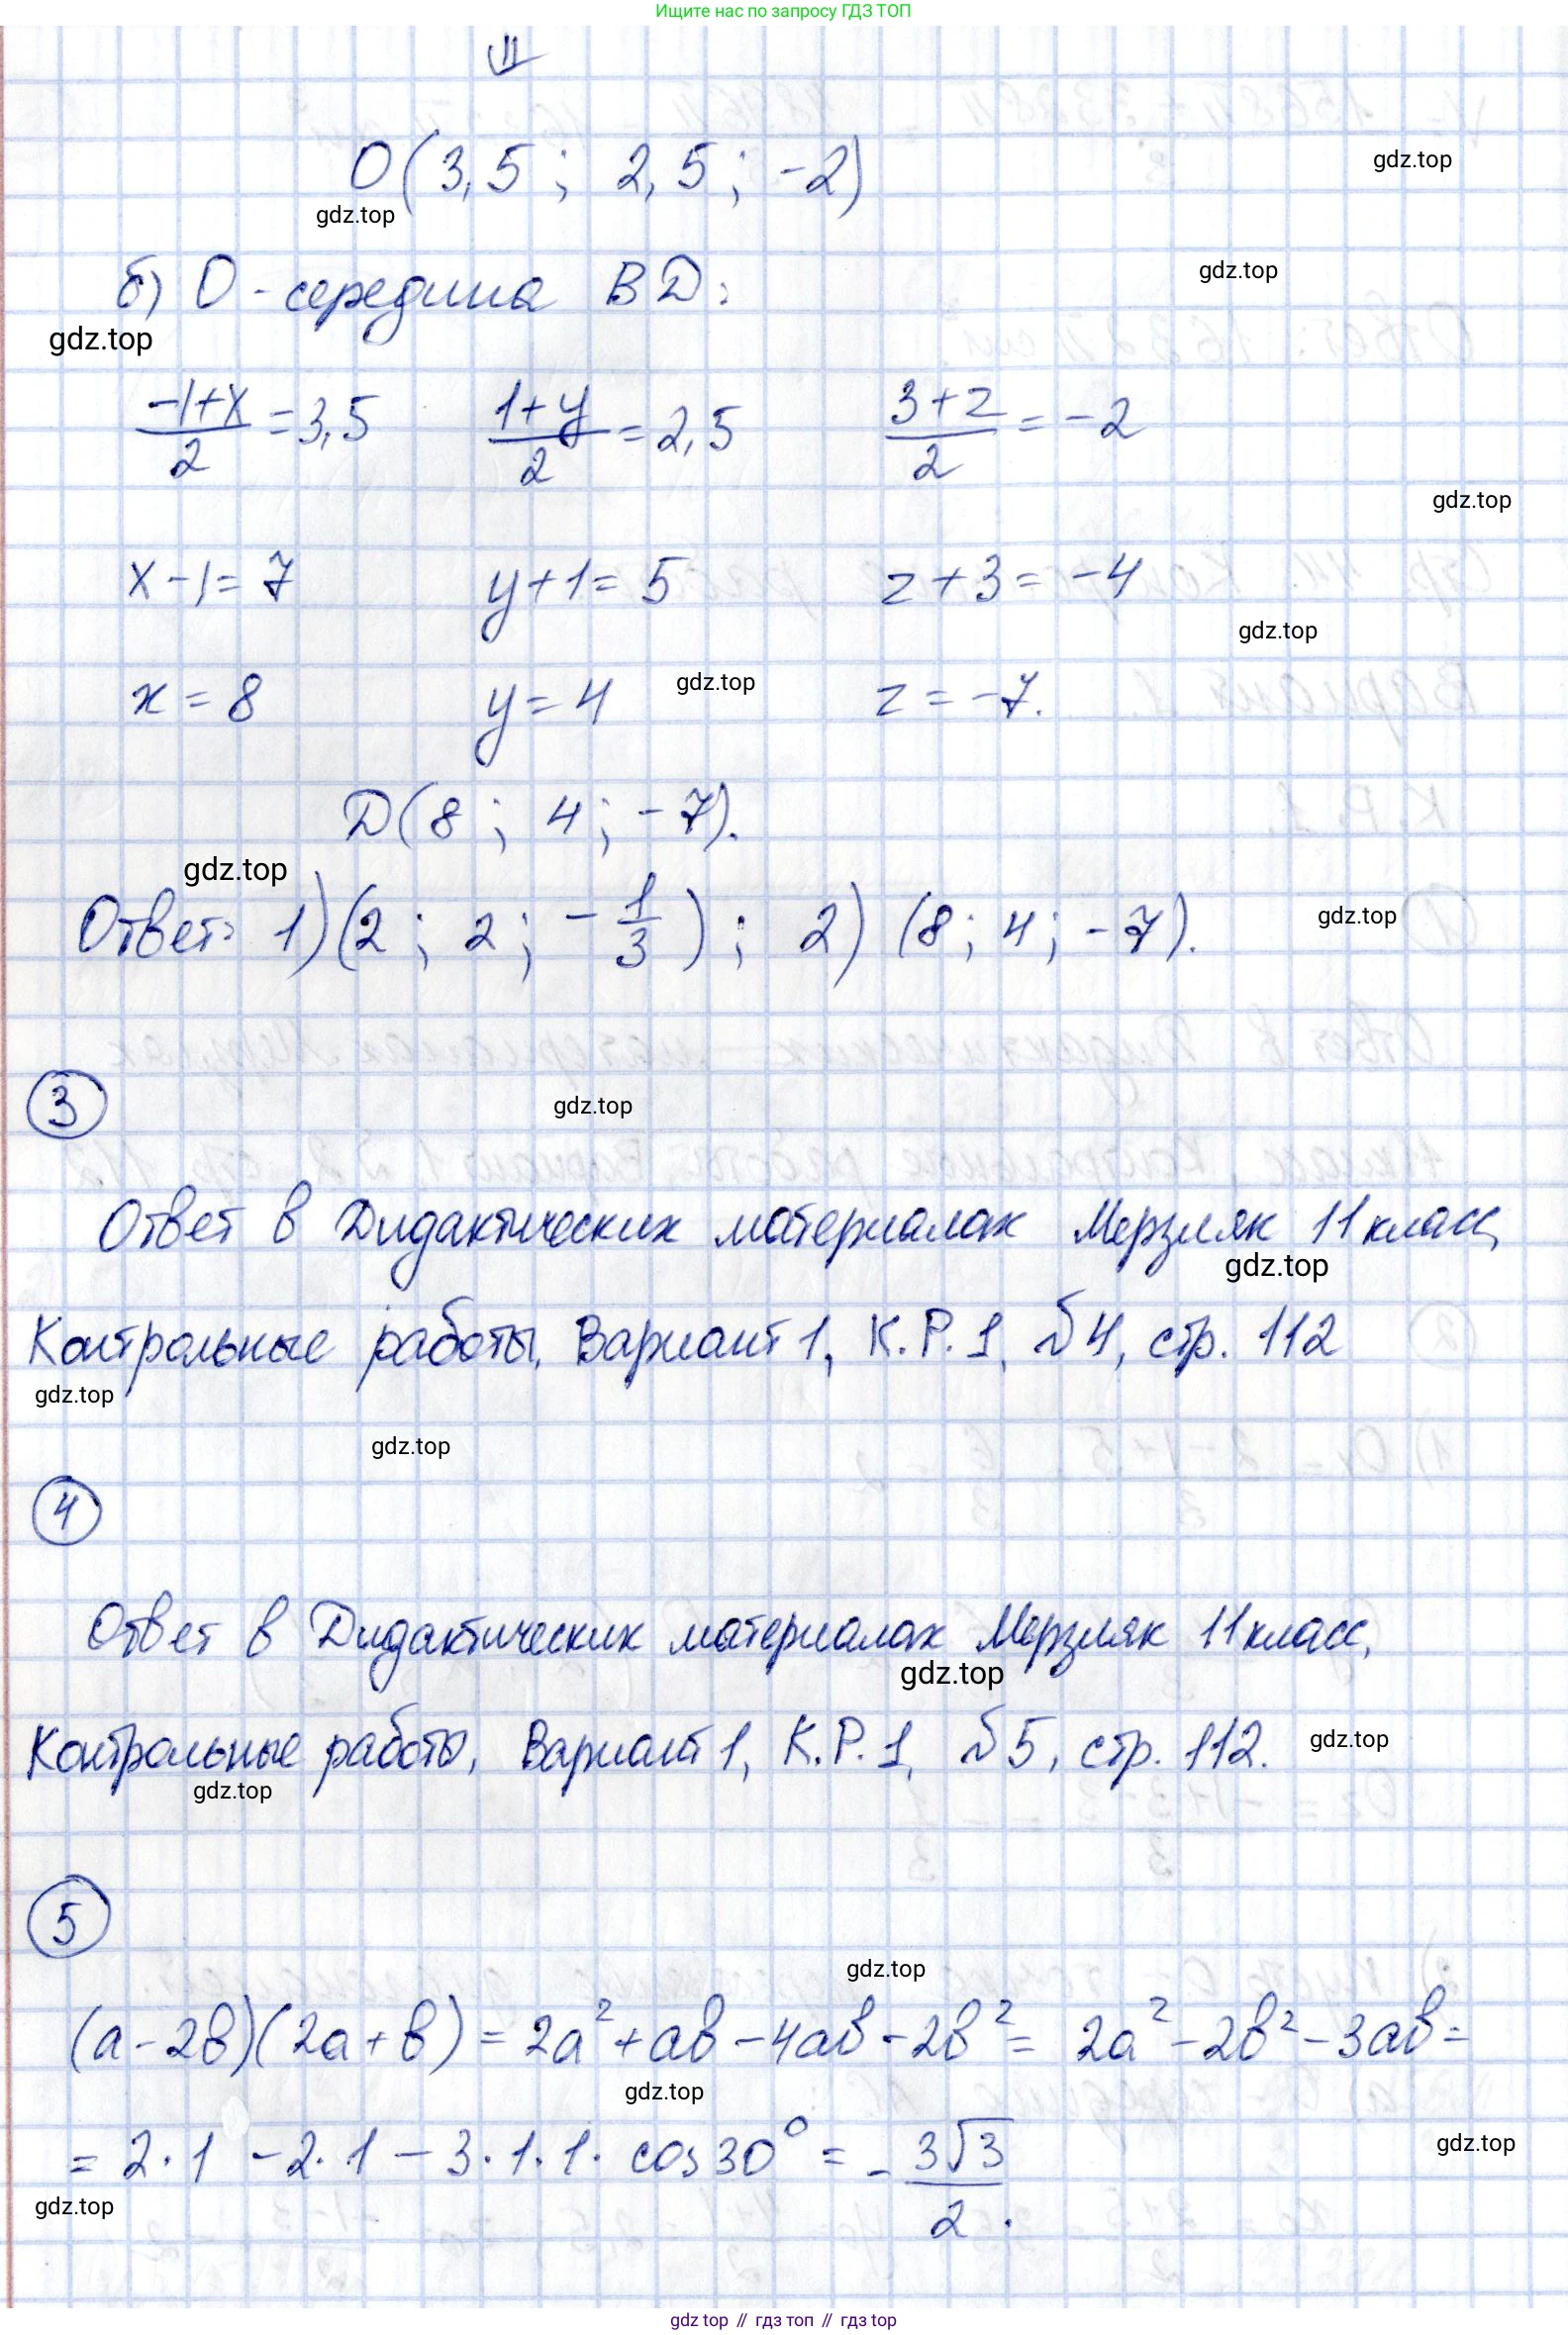 Ищите нас по запросу ГДЗ ТОП
⇓
gdz.top
O(3,5 ; 2,5 ; -2)
gdz.top
б) O - середина BD:
gdz.top
gdz.top
(-1+x)/2 = 3,5   (1+y)/2 = 2,5   (3+z)/2 = -2
gdz.top
x-1 = 7   y+1 = 5   z+3 = -4
gdz.top
x = 8   y = 4   gdz.top   z = -7.
D(8 ; 4 ; -7).
gdz.top
Ответ: 1) (2 ; 2 ; -1/3) ; 2) (8 ; 4 ; -7).
gdz.top
3
gdz.top
Ответ в Дидактических материалах Мерзляк 11 класс,
gdz.top
Контрольные работы, Вариант 1, К.Р. 1, №4, стр. 112
gdz.top
gdz.top
4
Ответ в Дидактических материалах Мерзляк 11 класс,
gdz.top
Контрольные работы, Вариант 1, К.Р. 1, №5, стр. 112.
gdz.top
gdz.top
5
gdz.top
(a-2b)(2a+b) = 2a²+ab-4ab-2b² = 2a²-2b²-3ab =
gdz.top
= 2·1 -2·1 - 3·1·1· cos30° = -3√3/2.
gdz.top
gdz.top
gdz top // гдз топ // гдз top